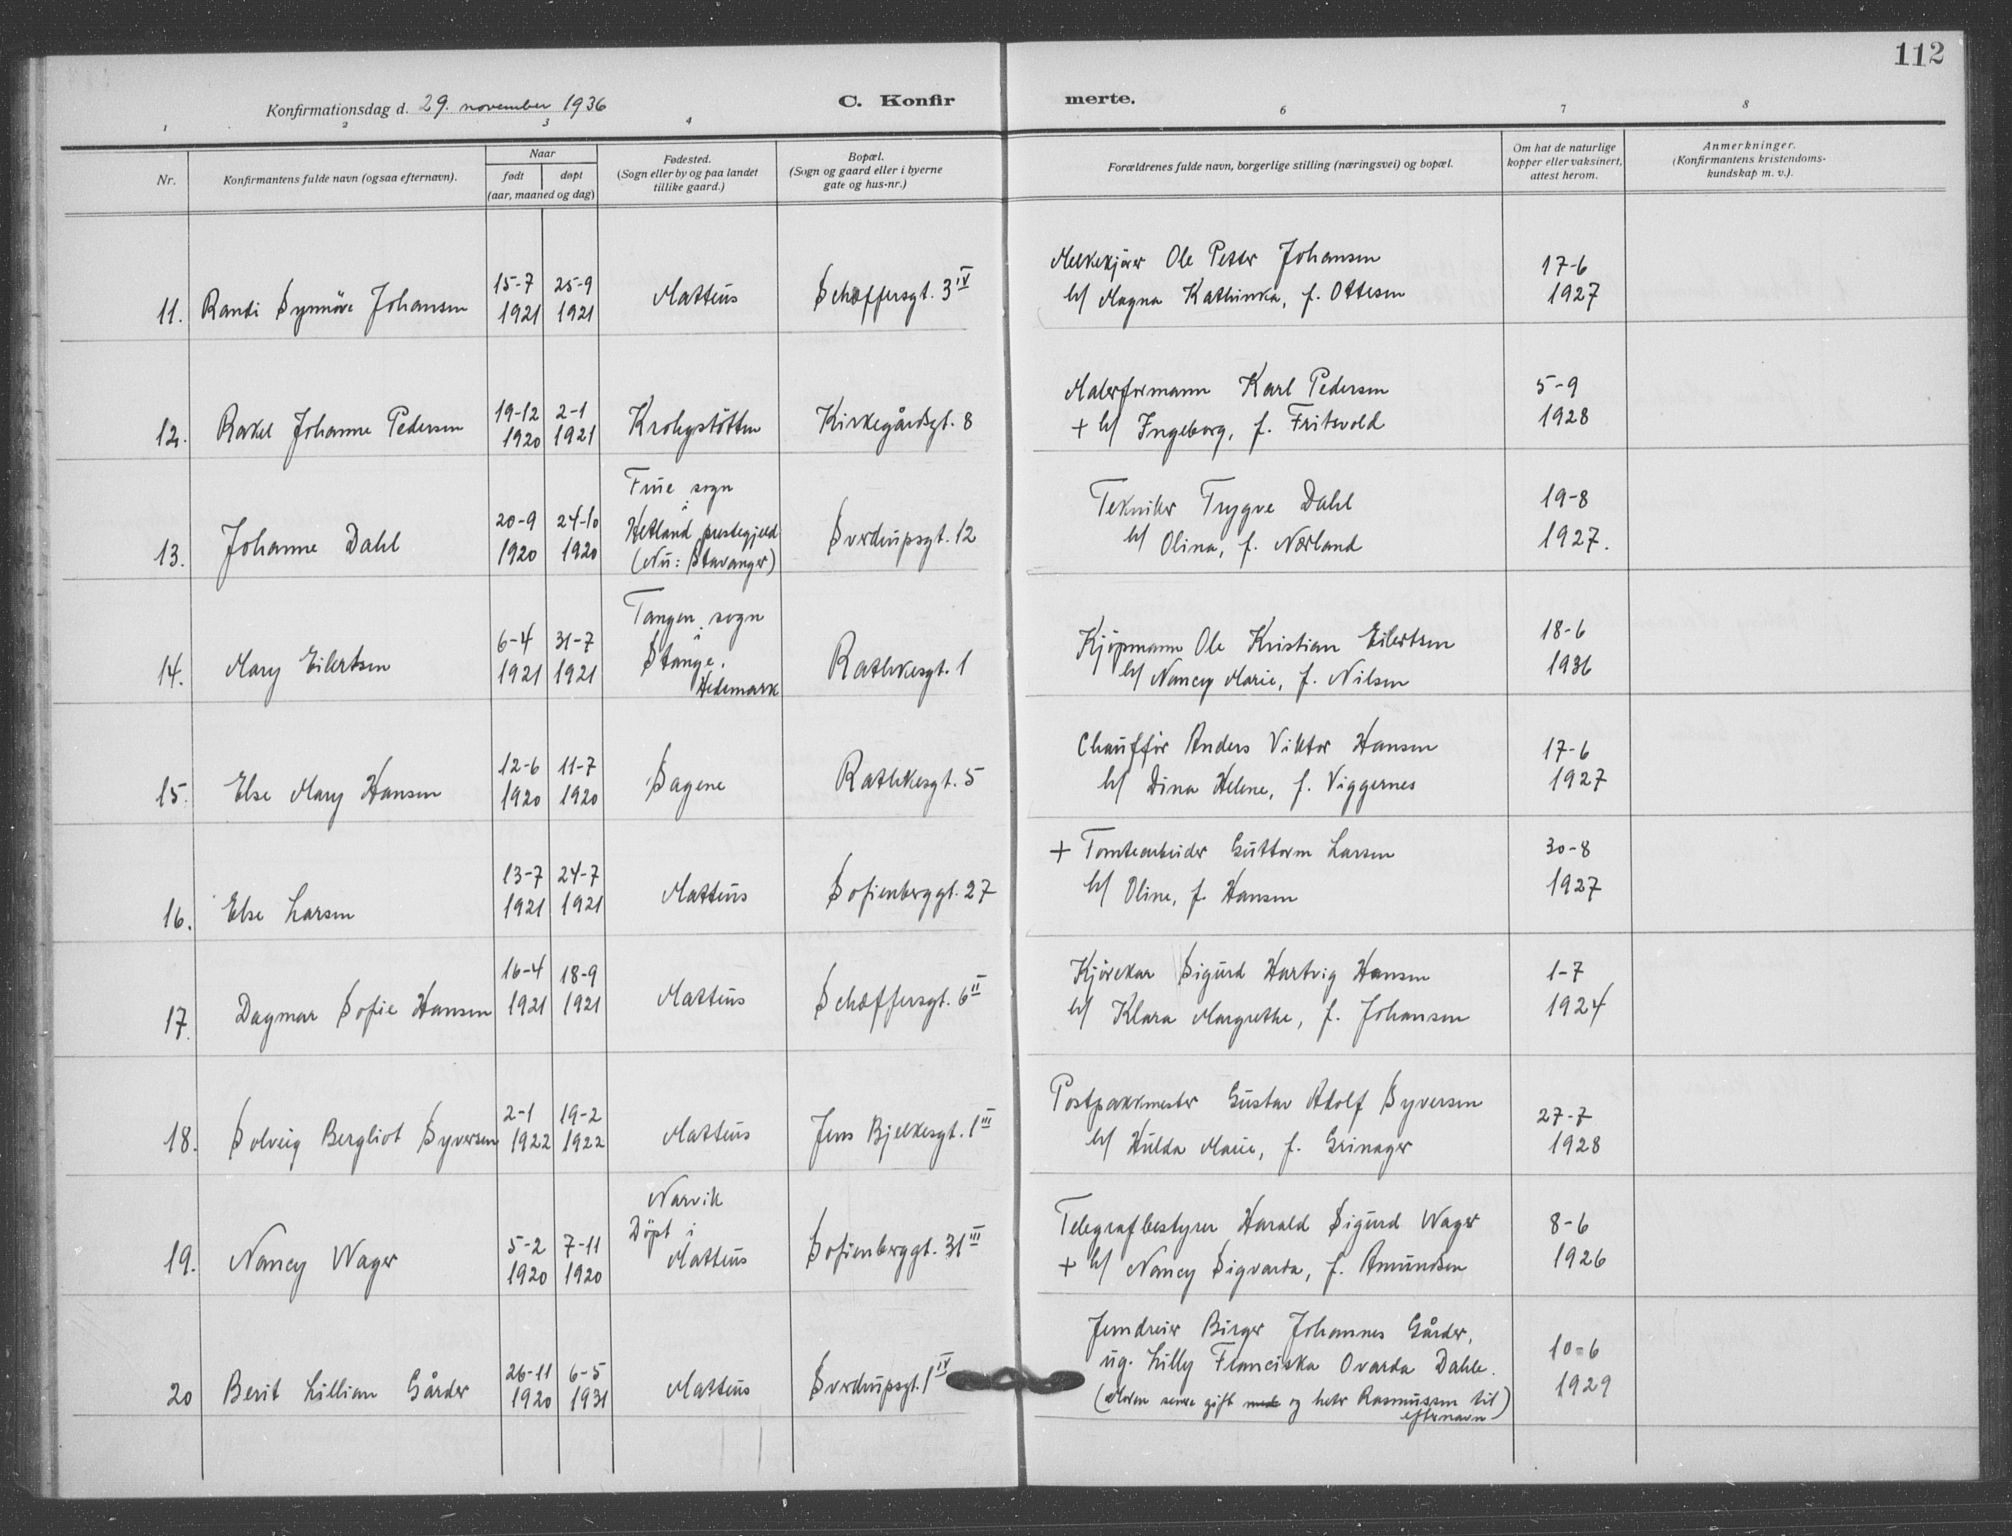 112
Konfirmationsdag d. 29. november 1936
C. Konfir merte.
1 2 3 4 6 7 8
Nr.
Konfirmantens fulde navn (ogsaa efternavn).
Naar
født døpt
(aar, maaned og dag)
Fødested.
(Sogn eller by og paa landet
tillike gaard.)
Bopæl.
(Sogn og gaard eller i byerne
gate og hus-nr.)
Forældrenes fulde navn, borgerlige stilling (næringsvei) og bopæl.
Om hat de naturlige
kopper eller vaksinert,
attest herom.
Anmerkninger.
(Konfirmantens kristendoms-
kundskap m. v.).
11. Randi Synnöve Johansen
15-7 1921
25-9 1921
Matteus
Schæffersgt. 3 IV
Melkekjörer Ole Petter Johansen
h/ Magna Kathinka, f. Ottesen
17-6
1927
12. Rakel Johanne Pedersen
19-12 1920
2-1 1921
Krohgstötten
Kirkegårdsgt. 8
Malerformann Karl Pedersen
+ h/ Ingeborg, f. Fritsvold
5-9
1928
13. Johanne Dahl
20-9 1920
24-10 1920
Frue sogn
i
Hetland prestegjeld
(Nu: Stavanger)
Sverdrupsgt. 12
Tekniker Trygve Dahl
h/ Olina, f. Nærland
19-8
1927.
14. Mary Eilertsen
6-4 1921
31-7 1921
Tangen sogn
i
Stange.
Hedemark
Rathkesgt. 1
Kjöpmann Ole Kristian Eilertsen
h/ Nancy Marie, f. Nilsen
18-6
1936
15. Else Mary Hansen
12-6 1920
11-7 1920
Sagene
Rathkesgt. 5
Chaufför Anders Viktor Hansen
h/ Dina Helene, f. Viggernes
17-6
1927
16. Else Larsen
13-7 1921
24-7 1921
Matteus
Sofienberggt. 27
+ Tomtearbeider Guttorm Larsen
h/ Oline, f. Hansen
30-8
1927
17. Dagmar Sofie Hansen
16-4 1921
18-9 1921
Matteus
Schæffersgt. 6 II
Kjörekar Sigurd Hartvig Hansen
h/ Klara Margrethe, f. Johansen
1-7
1924
18. Solveig Bergliot Syversen
2-1 1922
19-2 1922
Matteus
Jens Bjelkesgt. 1 III
Postpakkmester Gustav Adolf Syversen
h/ Hulda Marie, f. Grinager
27-7
1928
19. Nancy Wager
5-2 1920
7-11 1920
Narvik
Döpt i
Matteus
Sofienberggt. 31 III
Telegrafbestyrer Harald Sigurd Wager
+ h/ Nancy Sigvarda, f. Amundsen
8-6
1926
20 Berit Lillian Gårder
26-11 1920
6-5 1931
Matteus
Sverdrupsgt. 1 IV
Jerndreier Birger Johannes Gårder,
ug. Lilly Franciska Ovarda Dahle.
(Moren senere gift med og heter Rasmussen til
efternavn)
10-6
1929